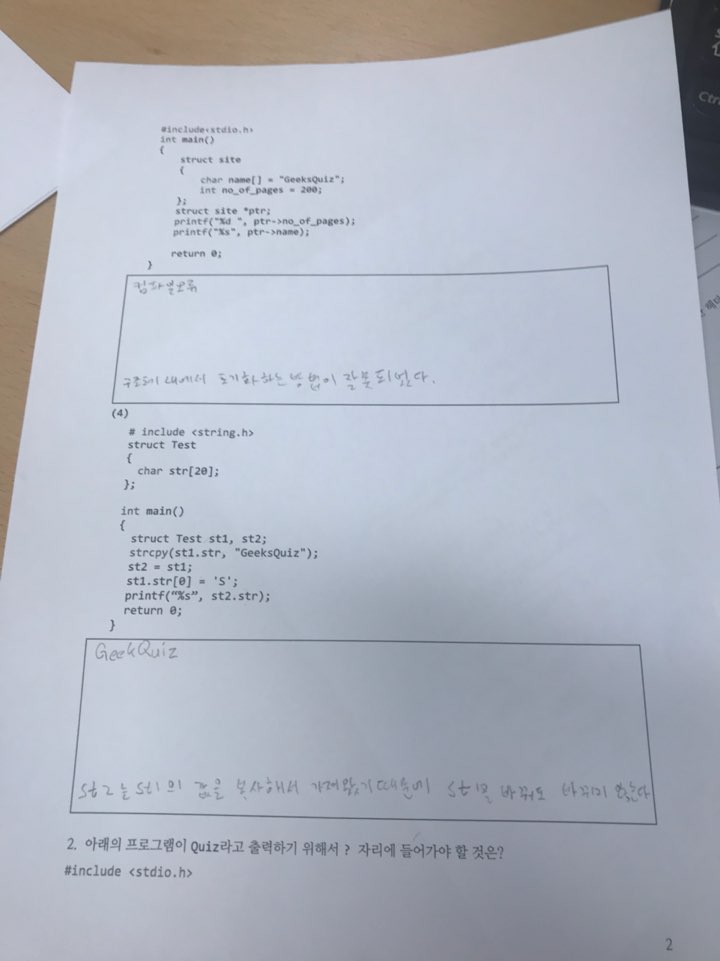 #include<stdio.h>
int main()
{
struct site
{
char name[] = "GeeksQuiz";
int no_of_pages = 200;
};
struct site *ptr;
printf("%d ", ptr->no_of_pages);
printf("%s", ptr->name);
return 0;
}
컴파일오류
구조체 내에서 초기화하는 방법이 잘못되었다.
(4)
# include <string.h>
struct Test
{
char str[20];
};
int main()
{
struct Test st1, st2;
strcpy(st1.str, "GeeksQuiz");
st2 = st1;
st1.str[0] = 'S';
printf(“%s”, st2.str);
return 0;
}
GeekQuiz
st2는 st1의 값을 복사해서 가져왔기때문에 st1을 바꿔도 바뀌지 않는다
2. 아래의 프로그램이 Quiz라고 출력하기 위해서 ? 자리에 들어가야 할 것은?
#include <stdio.h>
2